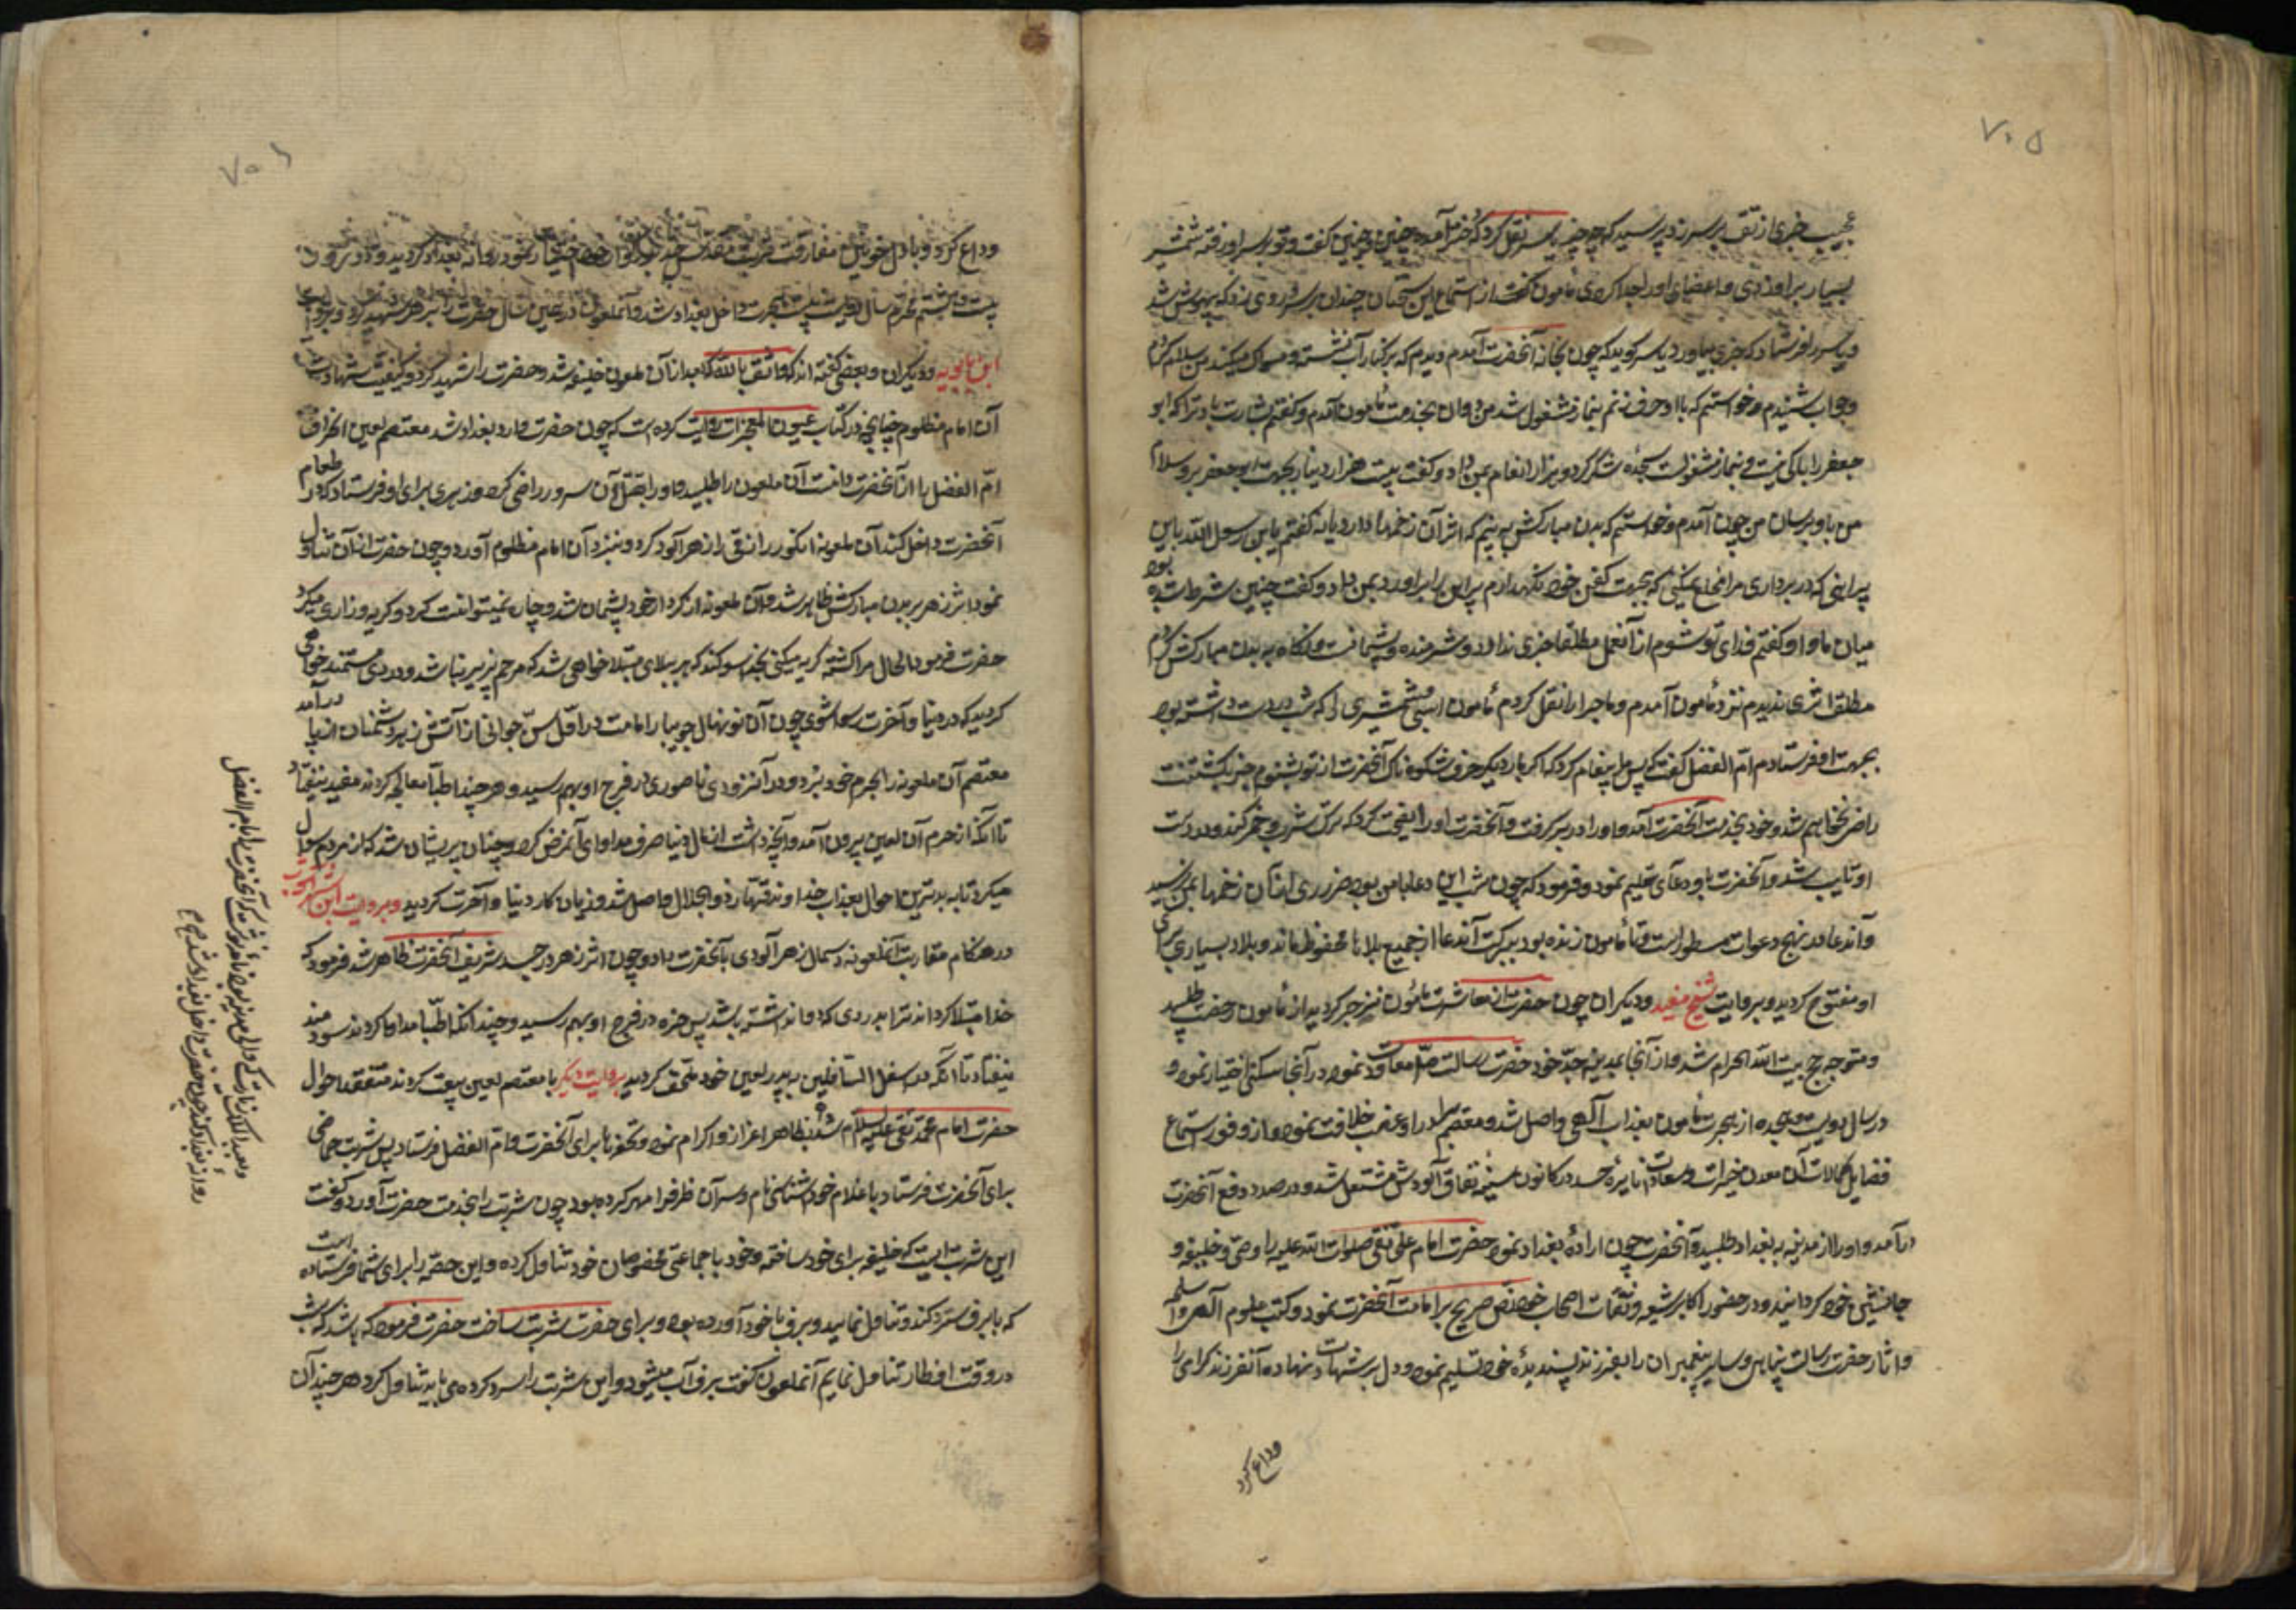 ۷۰۵
عجیب خبری از تو بسر زد پرسید که چه چیز یاسر نقل کرد که دخترت آمد و چنین و چنین گفت و تو بر سر او رفته شمشیر
بسیار بر او زدی و اعضای او را جدا کردی مأمون گفت از استماع این سخنان چندان بر سر و روی زد که بیهوش شد
و یاسر را فرستاد که خبری بیاورد یاسر گوید که چون بخانه آنحضرت آمدم دیدم که بر کنار آب نشسته و مسواک میکند من سلام کردم
و جواب شنیدم و خواستم که با او حرف زنم بنماز مشغول شد من دوان بخدمت مأمون آمدم و گفتم بشارت باد ترا که ابو
جعفر را باکی نیست و بنماز مشغولست سجده شکر کرد و هزار انعام بمن داد و گفت بیست هزار دینار بجهت ابو جعفر ببر و سلام
من باو برسان من چون آمدم و خواستم که بدن مبارکش به بینم که اثر آن زخمها دارد یا نه گفتم یا بن رسول الله باین
پیراهنی که در برداری مرا خلع میکنی که بجهت کفن خود نگهدارم پیراهن را برآورد بمن داد و گفت چنین شرط شده بود
میان ما و او گفتم فدای تو شوم از آنعمل مطلقا خبری ندارد و شرمنده و پشیمانست و نگاه به بدن مبارکش کردم
مطلقا اثری ندیدم نزد مأمون آمدم و ماجرا را نقل کردم مأمون اسبی و شمشیری را که شب در دست داشته بود
بجهت او فرستادم ام الفضل گفت که پس پیغام کرد که اگر بار دیگر حرف شکوه ناک آنحضرت از تو بشنوم جز بکشتنت
راضی نخواهم شد و خود بخدمت آنحضرت آمد و او را در بر گرفت و آنحضرت او را نصیحت کرد که ترک شرب خمر کند و در دست
او تایب شد و آنحضرت باو دعائی تعلیم نمود و فرمود که چون شب این دعا با من بود ضرری از آن زخمها بمن نرسید
و آندعا در نهج دعوات مسطور است و تا مأمون زنده بود ببرکت آندعا از جمیع بلاها محفوظ ماند و بلاد بسیاری برای
او مفتوح گردید و بروایت شیخ مفید و دیگران چون حضرت از معاشرت مأمون منزجر گردید از مأمون رخصت طلبید
و متوجه حج بیت الله الحرام شد و از آنجا بمدینه جد خود حضرت رسالت ص معاودت نموده در آنجا سکنی اختیار نمود و
در سال دویست و هیجده از هجرت مأمون بعذاب الهی واصل شد و معتصم برادر او غصب خلافت نمود و از وفور استماع
فضایل و کمالات آن معدن خیرات و سعادات نایره حسد در کانون سینه نفاق آلودش مشتعل شد و در صدد دفع آنحضرت
درآمد و او را از مدینه به بغداد طلبید و آنحضرت چون اراده بغداد نمود حضرت امام علی نقی صلوات الله علیه را وصی و خلیفه و
جانشین خود گردانید و در حضور اکابر شیعه و ثقات اصحاب خود نص صریح بر امامت آنحضرت نمود و کتب علوم الهی و اسلحه
و آثار حضرت رسالت پناهی و سایر پیغمبران را بفرزند پسندیده خود تسلیم نمود و دل بر شهادت نهاده آنفرزند گرامی را
وداع کرد
۷۰۶
وداع کرد و با دل خونین مفارقت تربت مقدس جد بزرگوار خود اختیار نمود روانه بغداد گردید و در روز
بیست و هشتم محرم سال دویست و بیست هجرت داخل بغداد شد و آنملعون در همین سال حضرت را بزهر شهید کرد و بروایت
ابن بابویه و دیگران و بعضی گفته اند که واثق بالله که بعد از آن ملعون خلیفه شد و حضرت را شهید کرد و کیفیت شهادت
آن امام مظلوم چنانچه در کتاب عیون المعجزات روایت کرده است که چون حضرت وارد بغداد شد معتصم لعین انحراف
ام الفضل را از آنحضرت دانست آن ملعون را طلبید و او را بقتل آن سرور راضی کرده زهری برای او فرستاد که در طعام
آنحضرت داخل کند آن ملعونه انگور رازقی را زهرآلود کرد و بنزد آن امام مظلوم آورد و چون حضرت از آن تناول
نمود اثر زهر بر بدن مبارکش ظاهر شد و آن ملعونه از کرد خود پشیمان شد و چاره نمیتوانست کرد و گریه و زاری میکرد
حضرت فرمود الحال مرا کشته گریه میکنی بخدا سوگند که به بلای مبتلا خواهی شد که مرهم پذیر نباشد و دردی مستمند خواهی
گردید که در دنیا و آخرت رسوا شوی چون آن نونهال جویبار امامت در اول سن جوانی از آتش زهر دشمنان از پا درآمد
معتصم آن ملعونه را بحرم خود برد و در آنزودی ناصوری در فرج او بهم رسید و هر چند اطبا معالجه کردند مفید نیفتاد
تا آنکه از حرم آن لعین بیرون آمد و آنچه داشت از مال دنیا صرف مداوای آنمرض کرد و چنان پریشان شد که از مردم سؤال
میکرد تا به بدترین احوال بعذاب خداوند قهار ذو الجلال واصل شد و زیان کار دنیا و آخرت گردید و بروایت ابن شهر آشوب
در هنگام مقاربت آنملعونه دسمال زهرآلودی بآنحضرت داد و چون اثر زهر در جسد شریف آنحضرت ظاهر شد فرمود که
خدا مبتلا گرداند ترا بدردی که دوا نداشته باشد پس خوره در فرج او بهم رسید و چندانکه اطبا مداوا کردند سودمند
نیفتاد تا آنکه در اسفل السافلین به پدر لعین خود ملحق گردید بروایت دیگر با معتصم لعین بیعت کردند متفقد احوال
حضرت امام محمد تقی علیه السلام شد و بظاهر اعزاز و اکرام نموده تحفه ها برای آنحضرت و ام الفضل فرستاد پس شربت حماضی
برای آنحضرت فرستاد با غلام خود اشناس نام و سر آن ظرف را مهر کرده بود چون شربت را بخدمت حضرت آورد گفت
این شربتیست که خلیفه برای خود ساخته و خود با جماعتی مخصوصان خود تناول کرده و این حصه را برای شما فرستاده است
که با برف سرد کنند و تناول نمایید و برف با خود آورده بود و برای حضرت شربت ساخت حضرت فرمود که باشد که شب
در وقت افطار تناول نمایم آنملعون گفت برف آب میشود و این شربت را سرد کرده می باید تناول کرد هر چند آن